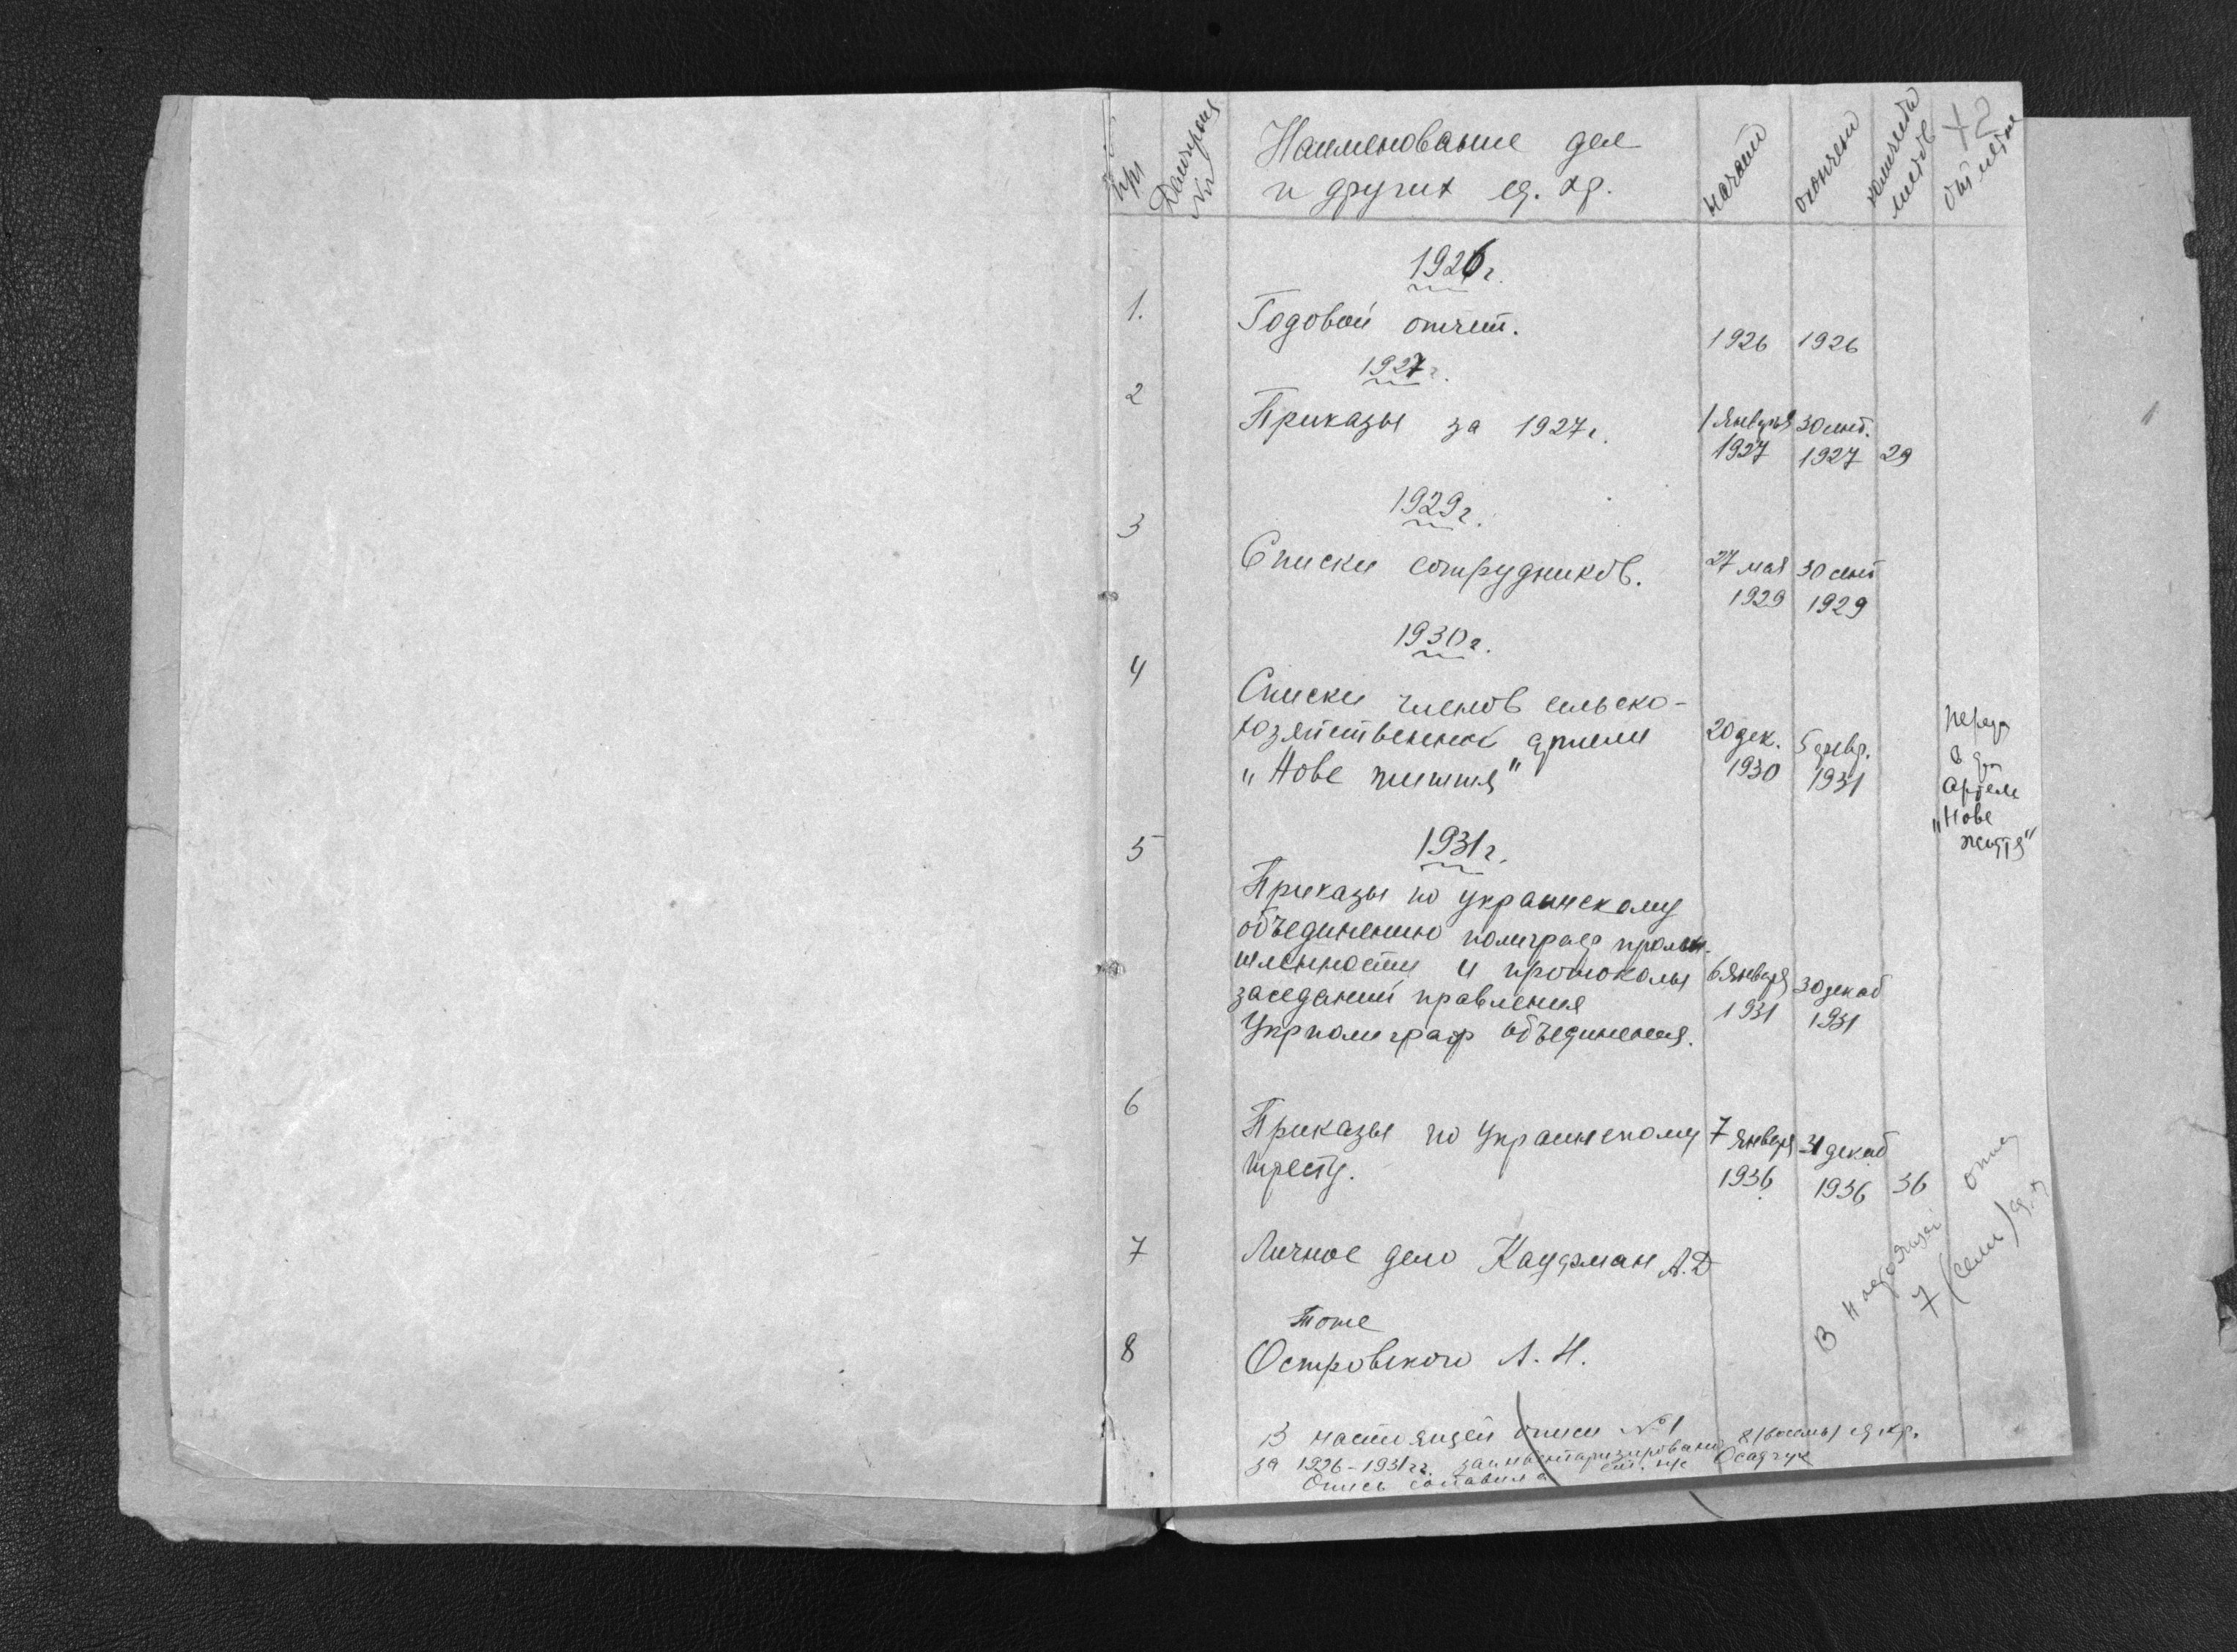 Наименование дел
и других ед. хр.
начато
окончен
количество
листов
1926 г.
1. Годовой отчет. 1926 1926
1927 г.
2 Приказы за 1927 г. 1 января 1927 30 сент. 1927 29
1929 г.
3 Списки сотрудников. 27 мая 1929 30 сент 1929
1930 г.
4 Списки членов сельско-
хозяйственной артели 20 дек. 1930 5 февр. 1931
"Нове життя"
в
артели
"Нове
життя"
1931 г.
5 Приказы по украинскому
объединению полиграф промы-
шленности и протоколы 6 января 1931 30 декаб 1931
заседаний правления
Укрполиграф объединения.
6 Приказы по Украинскому 7 января 1936 31 декаб 1936 36
тресту.
7 Личное дело Кауфман А.Д
Тоже
8 Островского А. Н.
В настоящей описи №1
за 1926-1931 гг. заинвентаризировано 8 (восемь) ед хр.
Опись составила Осадчук
В настоящей описи
7 (семь)